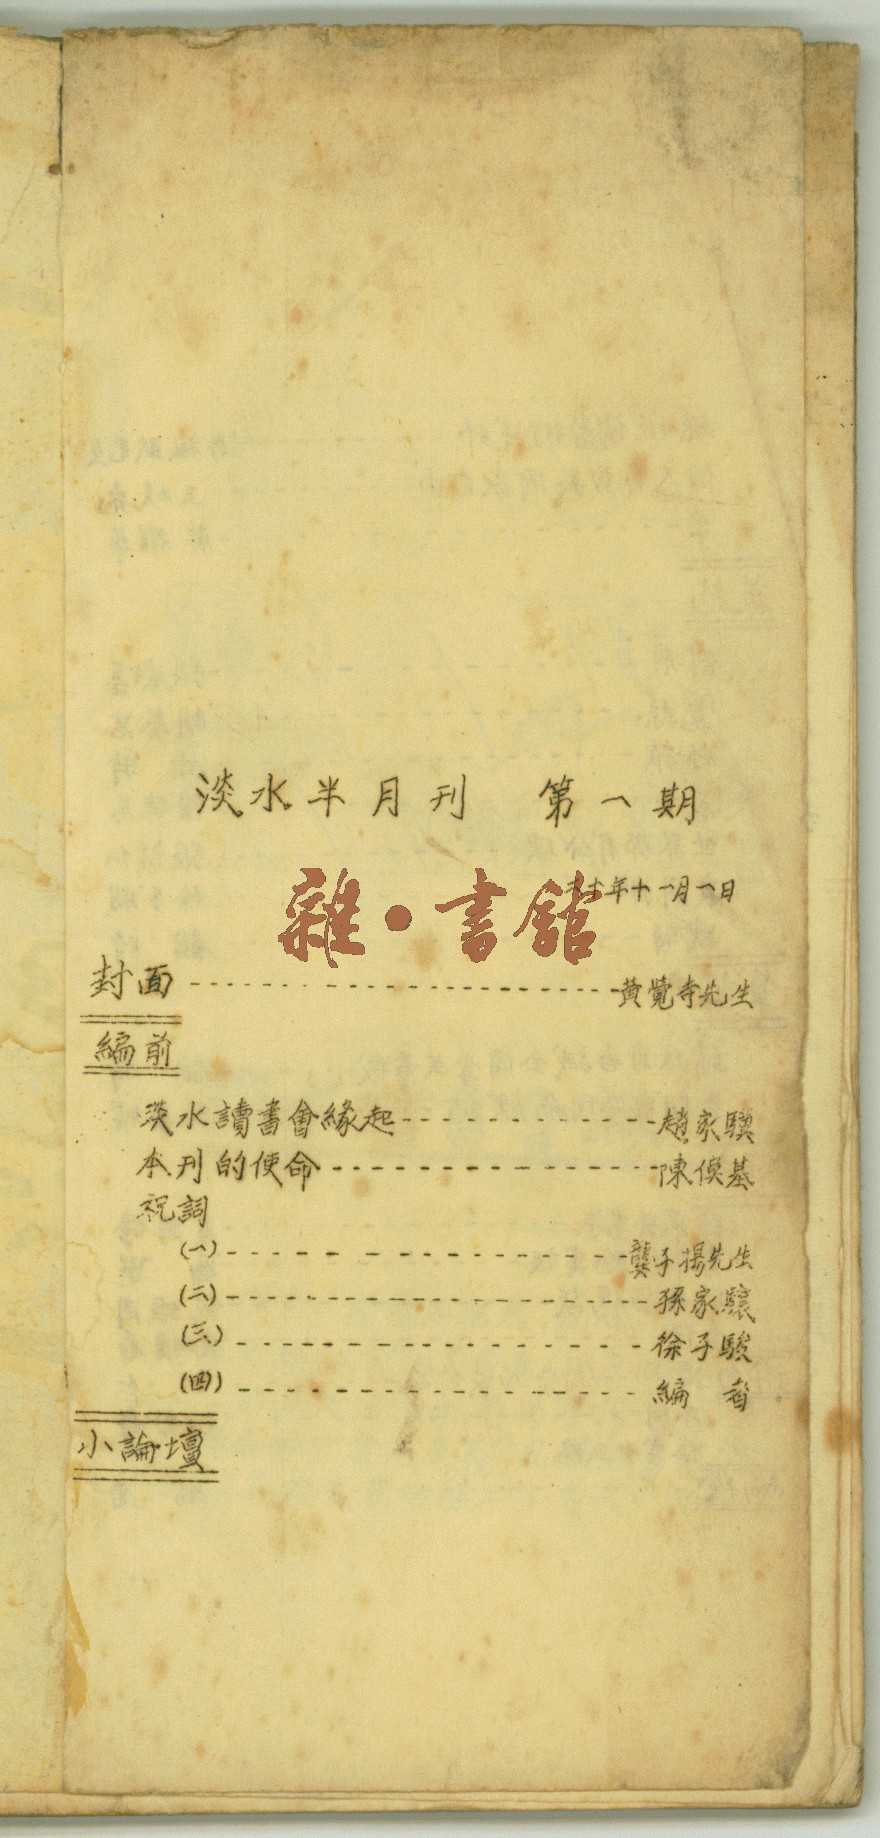 淡水半月刊 第一期
年十一月一日
雜·書館
封面 黃覺寺先生
編前
淡水讀書會緣起 趙家驥
本刊的使命 陳俁基
祝詞
(一) 龔子揚先生
(二) 孫家驤
(三) 徐子駿
(四) 編者
小論壇